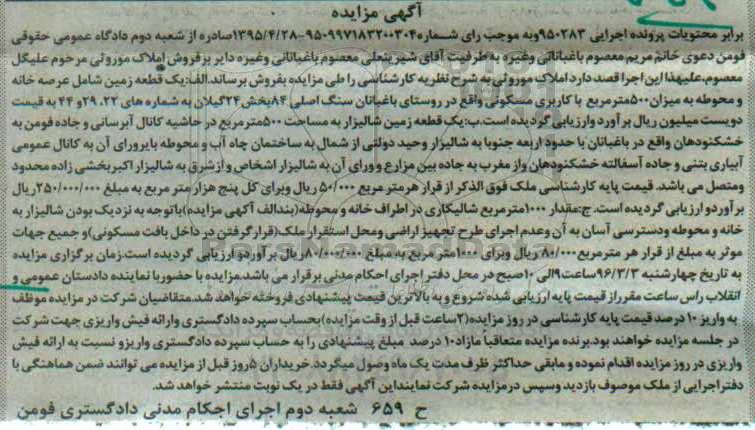 آگهی مزایده
برابر محتویات پرونده اجرایی ۹۵۰۲۸۳وبه موجب رای شماره۹۵۰۹۹۷۱۸۳۲۰۰۳۰۴-۱۳۹۵/۴/۲۸صادره از شعبه دوم دادگاه عمومی حقوقی
فومن دعوی خانم مریم معصوم باغبانانی وغیره به طرفیت آقای شیرینعلی معصوم باغبانانی وغیره دایر برفروش املاک موروثی مرحوم علیگل
معصوم،علیهذا این اجرا قصد دارد املاک موروثی به شرح نظریه کارشناسی را طی مزایده بفروش برساند.الف:یک قطعه زمین شامل عرصه خانه
و محوطه به میزان۵۰۰مترمربع با کاربری مسکونی واقع در روستای باغبانان سنگ اصلی ۸۴بخش۲۴گیلان به شماره های ۲۲، ۲۹و ۴۴ به قیمت
دویست میلیون ریال برآورد وارزیابی گردیده است.ب:یک قطعه زمین شالیزار به مساحت ۵۰۰۰مترمربع در حاشیه کانال آبرسانی و جاده فومن به
خشکنودهان واقع در باغبانان با حدود اربعه جنوبا به شالیزار وحید دولتی از شمال به ساختمان چاه آب و محوطه باپرورای آن به کانال عمومی
آبیاری بتنی و جاده آسفالته خشکنودهان واز مغرب به جاده بین مزارع وورای آن به شالیزار اشخاص وازشرق به شالیزار اکبربخشی زاده محدود
ومتصل می باشد. قیمت پایه کارشناسی ملک فوق الذکر از قرار هرمتر مربع ۵۰/۰۰۰ ریال وبرای کل پنج هزار متر مربع به مبلغ ۲۵۰/۰۰۰/۰۰۰ریال
برآوردو ارزیابی گردیده است. ج:مقدار ۱۰۰۰مترمربع شالیکاری در اطراف خانه و محوطه(بندالف آگهی مزایده)باتوجه به نزدیک بودن شالیزار به
خانه و محوطه ودسترسی آسان به آن وعدم اجرای طرح تجهیز اراضی ومحل استقرار ملک(قرار گرفتن در داخل بافت مسکونی)و جمیع جهات
موثر به مبلغ از قرار هر مترمربع۸۰/۰۰۰ ریال وبرای ۱۰۰۰متر مربع به مبلغ ۸۰/۰۰۰/۰۰۰ریال برآوردو ارزیابی گردیده است.زمان برگزاری مزایده
به تاریخ چهارشنبه ۹۶/۳/۳ساعت۹الی ۱۰صبح در محل دفتر اجرای احکام مدنی برقرار می باشد.مزایده با حضوربا نماینده دادستان عمومی و
انقلاب راس ساعت مقرر از قیمت پایه ارزیابی شده شروع و به بالاترین قیمت پیشنهادی فروخته خواهد شد.متقاضیان شرکت در مزایده موظف
به واریز ۱۰ درصد قیمت پایه کارشناسی در روز مزایده (۲ساعت قبل از وقت مزایده)بحساب سپرده دادگستری وارائه فیش واریزی جهت شرکت
در جلسه مزایده خواهند بود.برنده مزایده متعاقبا مازاد۱۰ درصد مبلغ پیشنهادی را به حساب سپرده دادگستری واریزو نسبت به ارائه فیش
واریزی در روز مزایده اقدام نموده و مابقی حداکثر ظرف مدت یک ماه وصول میگردد.خریداران ۵روز قبل از مزایده می توانند ضمن هماهنگی با
دفتراجرایی از ملک موصوف بازدید وسپس درمزایده شرکت نمایندااین آگهی فقط در یک نوبت منتشر خواهد شد.
ح ۶۵۹ شعبه دوم اجرای احکام مدنی دادگستری فومن